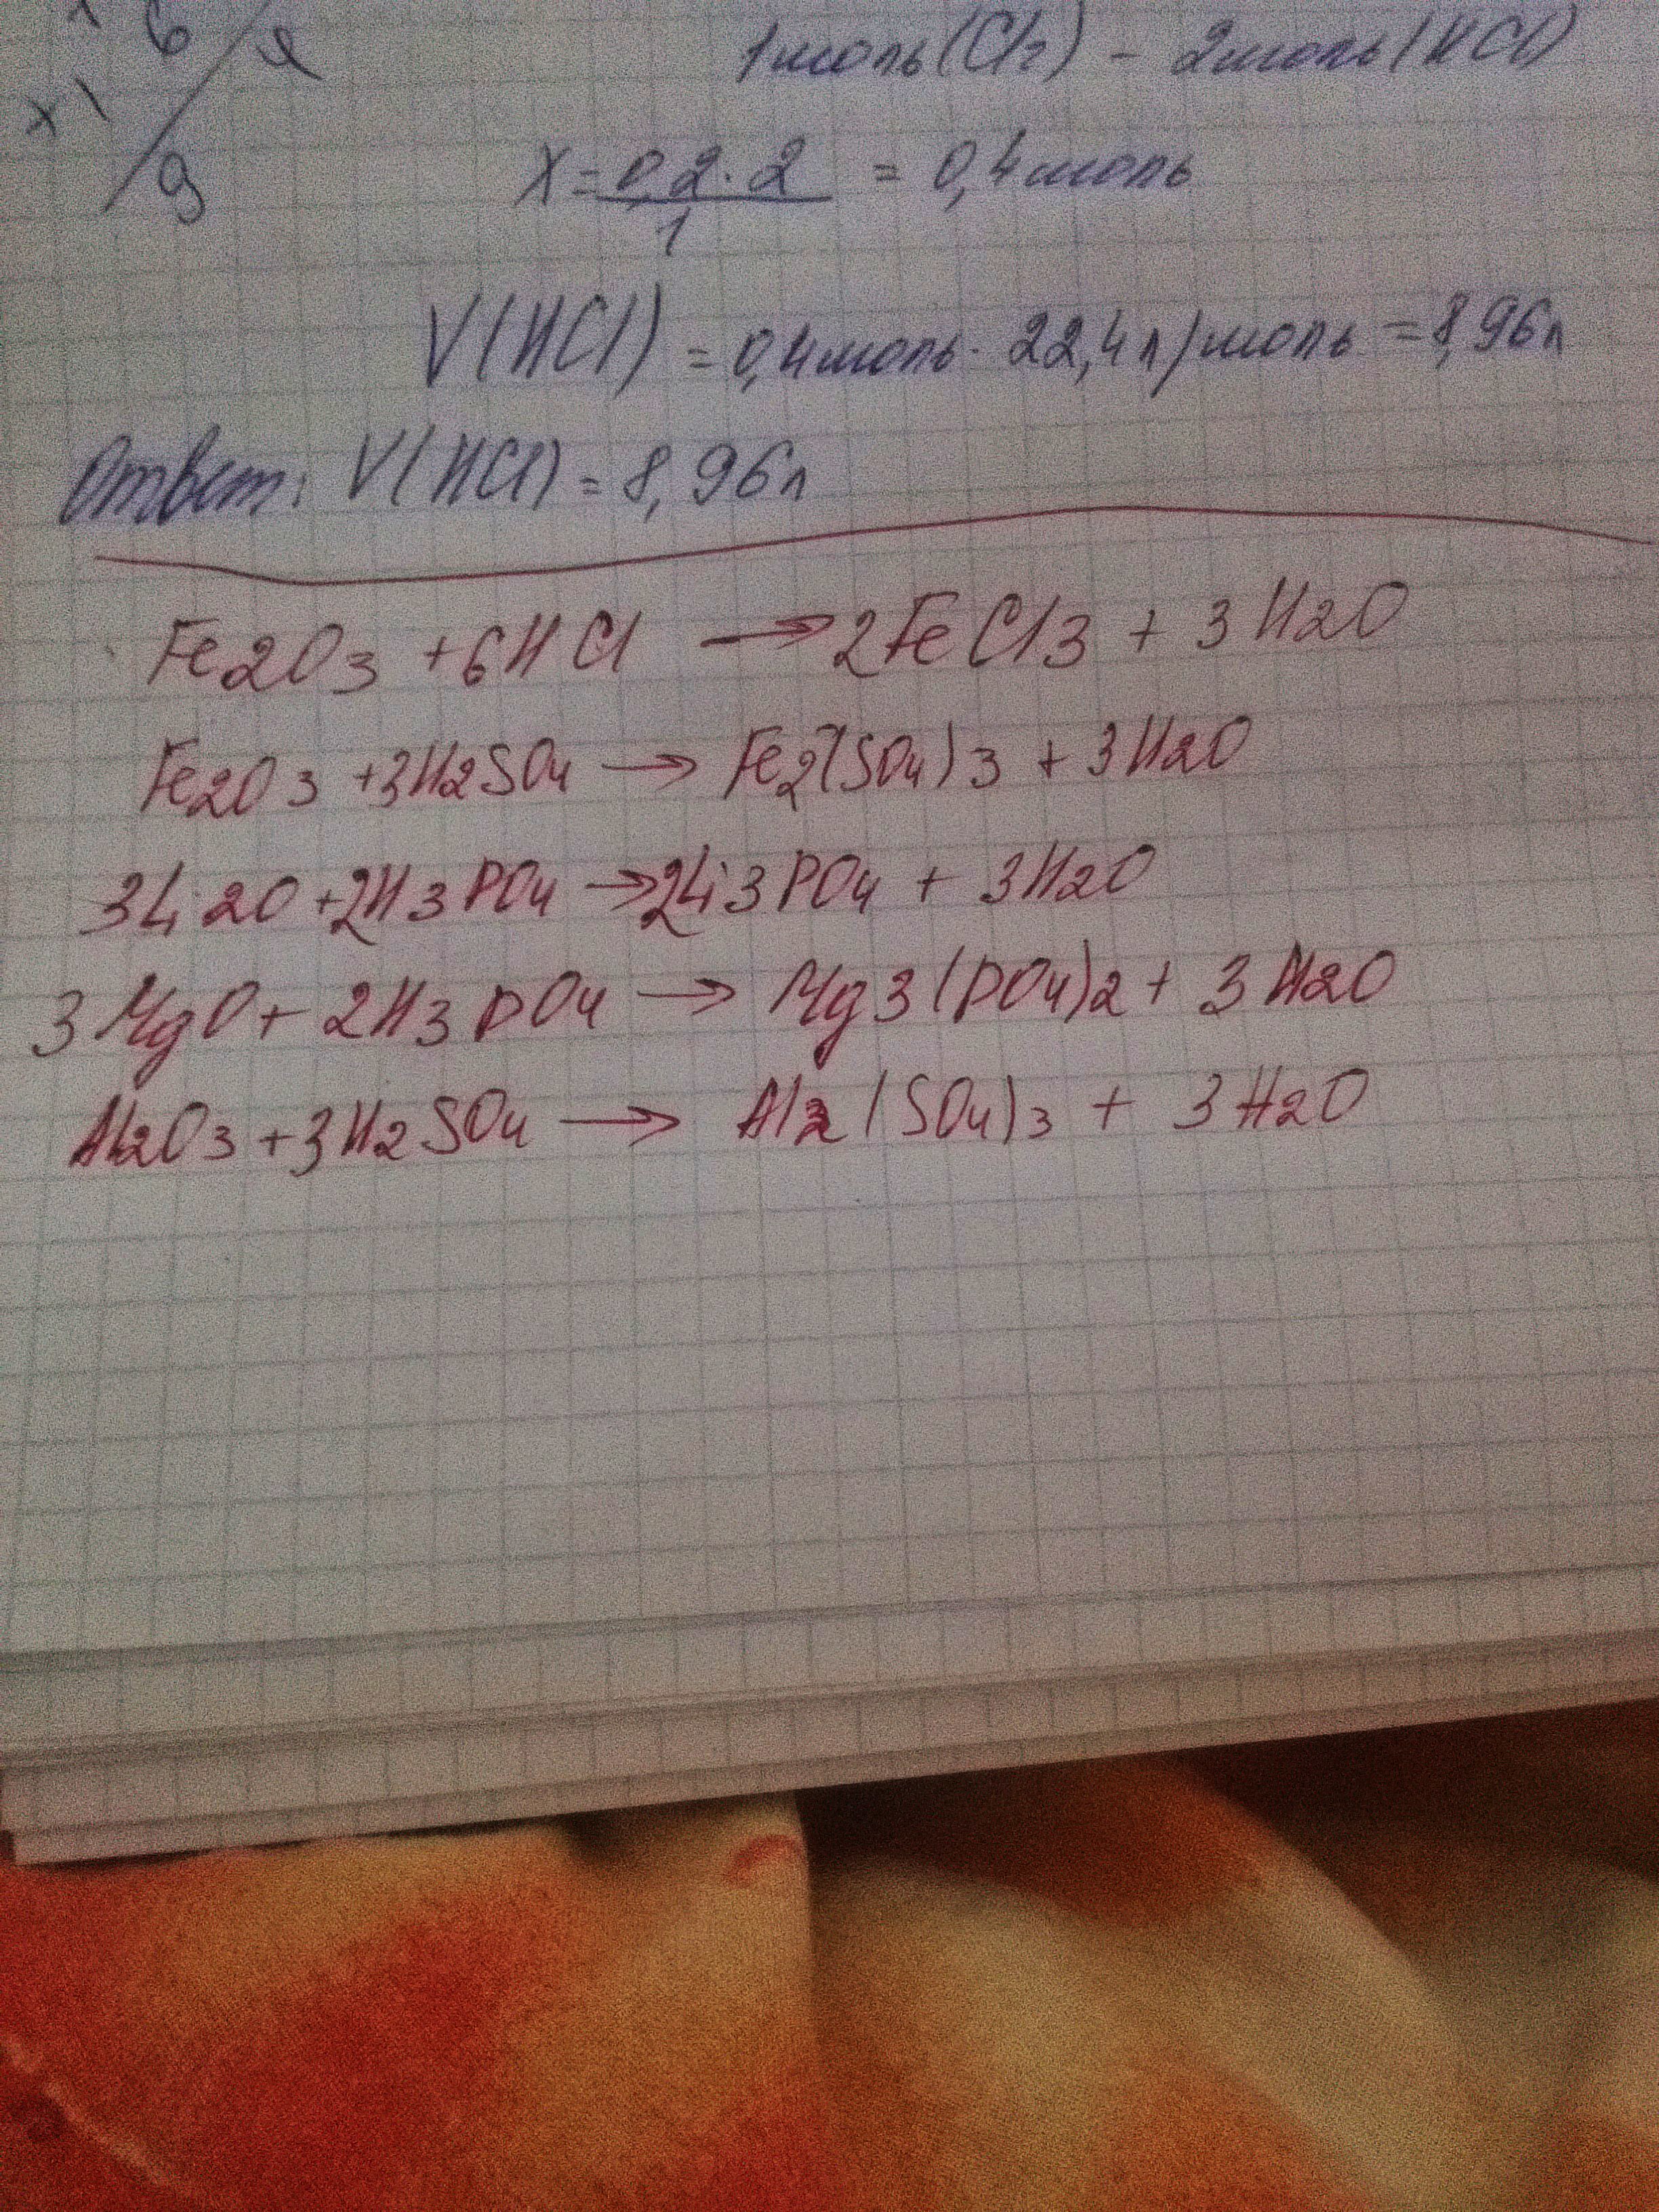 6 2
х 1
9
1 моль (Cl2) - 2 моль (HCl)
X = 0,2 · 2 / 1 = 0,4 моль
V(HCl) = 0,4 моль · 22,4 л/моль = 8,96 л
Ответ: V(HCl) = 8,96 л
Fe2O3 + 6HCl → 2FeCl3 + 3H2O
Fe2O3 + 3H2SO4 → Fe2(SO4)3 + 3H2O
3Li2O + 2H3PO4 → 2Li3PO4 + 3H2O
3MgO + 2H3PO4 → Mg3(PO4)2 + 3H2O
Al2O3 + 3H2SO4 → Al2(SO4)3 + 3H2O